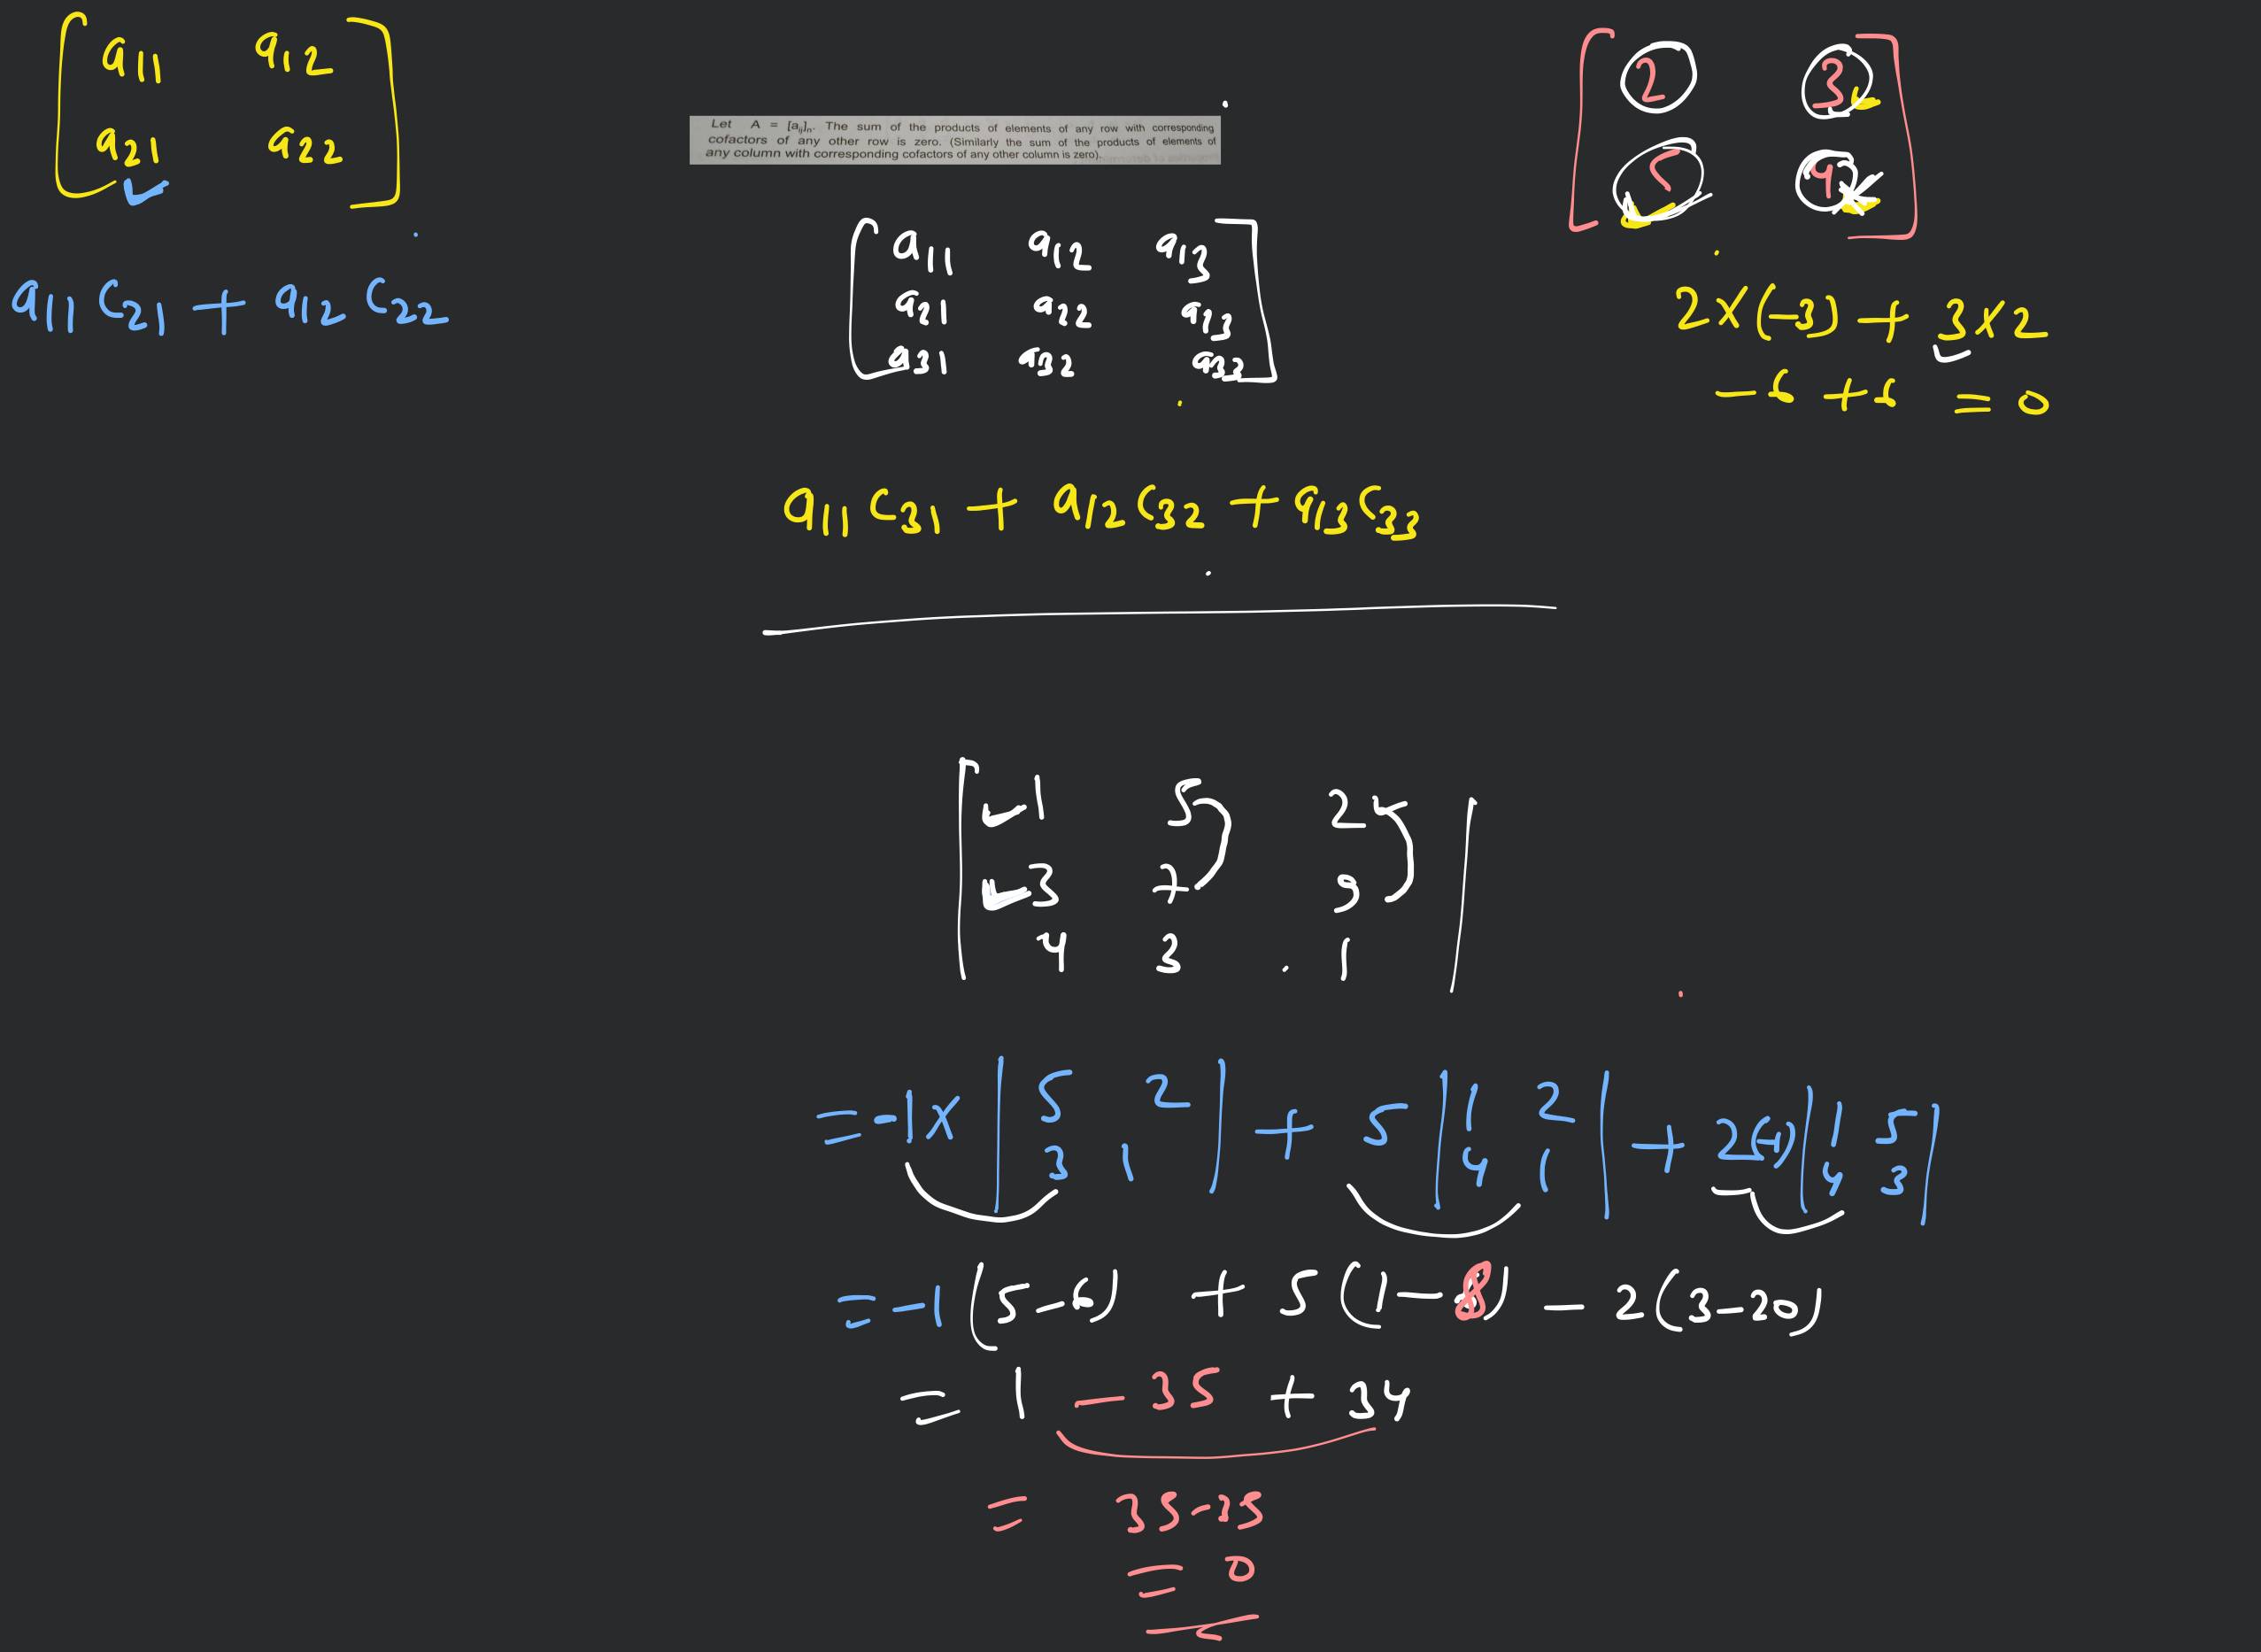 a11 a12
a21 a22
a11 C21 + a12 C22
Let A = [aij]n. The sum of the products of elements of any row with corresponding
cofactors of any other row is zero. (Similarly the sum of the products of elements of
any column with corresponding cofactors of any other column is zero).
a11 a12 a13
a21 a22 a23
a31 a32 a33
a11 C31 + a12 C32 + a13 C33
2 3
5 9
2×(-3) + 3×2
-6 + 6 = 0
1 5 2
3 7 9
4 3 1
= -1× | 5 2 | + 5 | 1 2 | + 2(-1) | 1 5 |
3 1 4 1 4 3
= -1 (5-6) + 5(1-8) - 2(3-20)
= 1 - 35 + 34
= 35-35
= 0